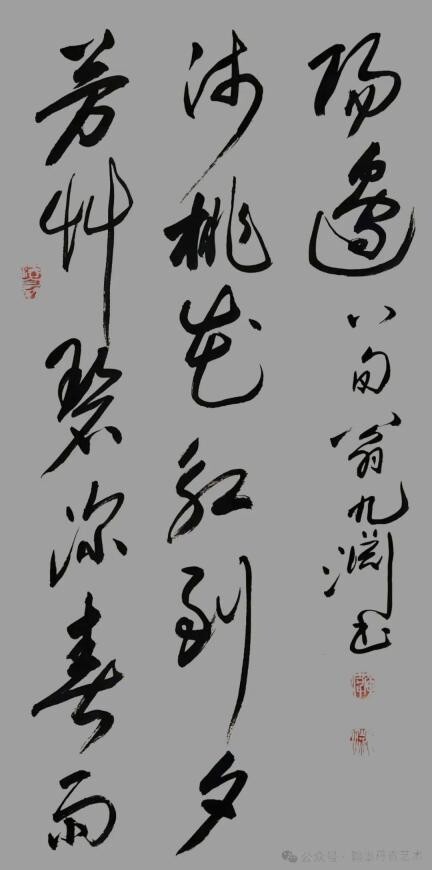 芳草碧深春雨
沛桃花紅到夕
陽邊 八旬翁九渊书
公众号·翰墨丹青艺术